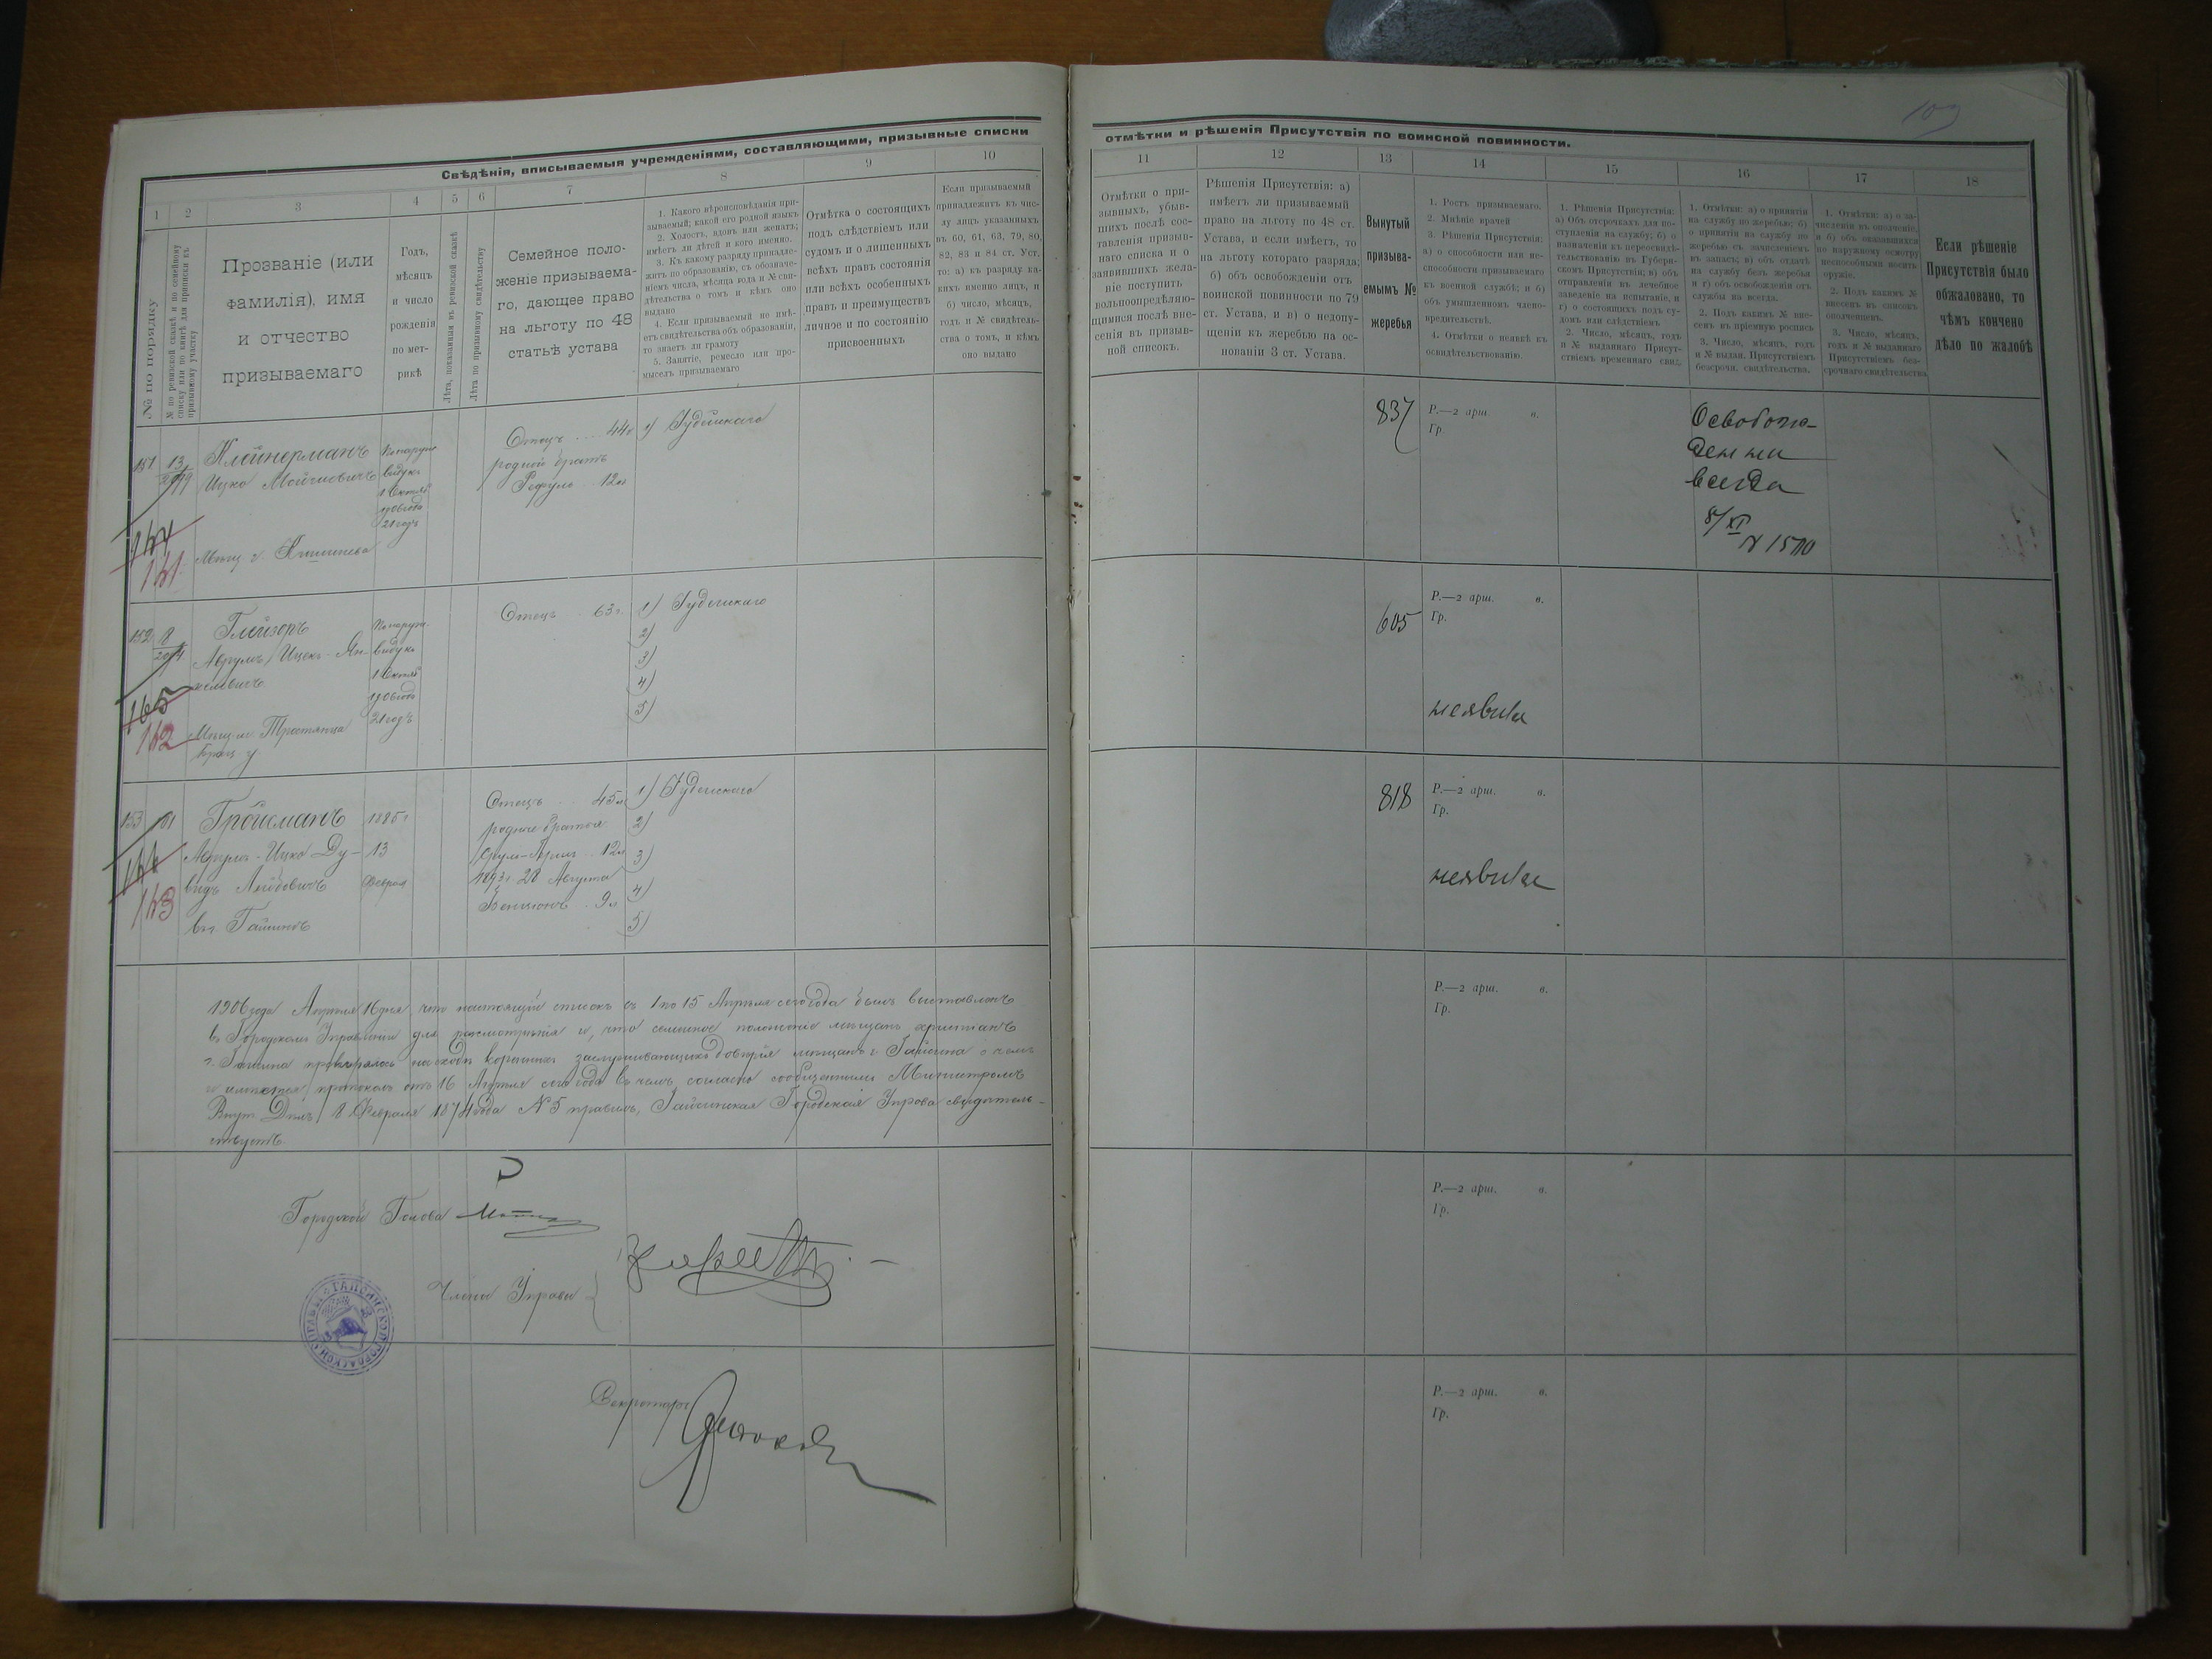 Свѣдѣнія, вписываемыя учрежденіями, составляющими, призывные списки
1 2 3 4 5 6 7 8 9 10
№ по порядку
№ по ревизской сказкѣ и по семейному
списку или по книгѣ для приписки къ
призывному участку
Прозваніе (или
фамилія), имя
и отчество
призываемаго
Годъ,
мѣсяцъ
и число
рожденія
по мет-
рикѣ
Лѣта, показанныя въ ревизской сказкѣ
Лѣта по призывному свидѣтельству
Семейное поло-
женіе призываема-
го, дающее право
на льготу по 48
статьѣ устава
1. Какого вѣроисповѣданія при-
зываемый; какой его родной языкъ
2. Холостъ, вдовъ или женатъ;
имѣетъ ли дѣтей и кого именно.
3. Къ какому разряду принадле-
житъ по образованію, съ обозначе-
ніемъ числа, мѣсяца года и № сви-
дѣтельства о томъ и кѣмъ оно
выдано
4. Если призываемый не имѣ-
етъ свидѣтельства объ образованіи,
то знаетъ ли грамоту
5. Занятіе, ремесло или про-
мыселъ призываемаго
Отмѣтка о состоящихъ
подъ слѣдствіемъ или
судомъ и о лишенныхъ
всѣхъ правъ состоянія
или всѣхъ особенныхъ
правъ и преимуществъ
лично и по состоянію
присвоенныхъ
Если призываемый
принадлежитъ къ чис-
лу лицъ указанныхъ
въ 60, 61, 63, 79, 80,
82, 83 и 84 ст. Уст.
то: а) къ разряду ка-
кихъ именно лицъ, и
б) число, мѣсяцъ,
годъ и № свидѣтель-
ства о томъ, и кѣмъ
оно выдано
151 13
Клейнерманъ
Ицко Мойшевичъ
По наруж.
виду къ
1 Октяб.
1906 года
21 годъ
Отецъ ... 44 г
родной братъ
12 л
1) Іудейскаго
141
Мѣщ. г. Кишинева
152 8
Глейзеръ
Аврумъ Ицекъ Ян-
келевичъ
По наруж.
виду къ
1 Октяб
1906 года
21 годъ
Отецъ . 63 г.
1) Іудейскаго
2)
3)
4)
5)
165
142
Мѣщ. м. Тростянца
Брац. у
153
Гройсманъ
Аврумъ-Ицко Ду-
видъ Лейбовичъ
въ г. Гайсинѣ
1885 г
13
Феврал
Отецъ . . 45 л
родные братья
12 л
28 Августа
Бенціонъ . 9 л
1) Іудейскаго
2)
3)
4)
5)
143
1906 года Апрѣля 16 дня, что настоящій списокъ съ 1 по 15 Апрѣля сего года былъ выставленъ
въ Городскомъ Управленіи для разсмотрѣнія и, что семейное положеніе мѣщанъ христіанъ
г. Гайсина провѣрялось на сходѣ коренныхъ заслуживающихъ довѣрія мѣщанъ г. Гайсина о чемъ
и имѣется протоколъ отъ 16 Апрѣля сего года въ чемъ, согласно сообщеннымъ Министромъ
Внут. Дѣлъ 8 Февраля 1874 года № 5 правилъ, Гайсинская Городская Управа свидѣтель-
ствуетъ.
Городской Голова
Члены Управы
ГАЙСИНСКОЙ ГОРОДСКОЙ УПРАВЫ
Секретарь
109
отмѣтки и рѣшенія Присутствія по воинской повинности.
11 12 13 14 15 16 17 18
Отмѣтки о при-
зывныхъ, убыв-
шихъ послѣ сос-
тавленія призыв-
наго списка и о
заявившихъ жела-
ніе поступить
вольноопредѣляю-
щимися послѣ вне-
сенія въ призыв-
ной списокъ.
Рѣшенія Присутствія: а)
имѣетъ ли призываемый
право на льготу по 48 ст.
Устава, и если имѣетъ, то
на льготу котораго разряда;
б) объ освобожденіи отъ
воинской повинности по 79
ст. Устава, и в) о недопу-
щеніи къ жеребью на ос-
нованіи 3 ст. Устава.
Вынутый
призыва-
емымъ №
жеребья
1. Ростъ призываемаго.
2. Мнѣніе врачей
3. Рѣшенія Присутствія:
а) о способности или не-
способности призываемаго
къ военной службѣ; и б)
объ умышленномъ члено-
вредительствѣ.
4. Отмѣтки о неявкѣ къ
освидѣтельствованію.
1. Рѣшенія Присутствія:
а) Объ отсрочкахъ для по-
ступленія на службу; б) о
назначеніи къ переосвидѣ-
тельствованію въ Губерн-
скомъ Присутствіи; в) объ
отправленіи въ лечебное
заведеніе на испытаніе, и
г) о состоящихъ подъ су-
домъ или слѣдствіемъ
2. Число, мѣсяцъ, годъ
и № выданнаго Присут-
ствіемъ временнаго свид.
1. Отмѣтки: а) о принятіи
на службу по жеребью; б)
о принятіи на службу по
жеребью съ зачисленіемъ
въ запасъ; в) объ отдачѣ
на службу безъ жеребья
и г) объ освобожденіи отъ
службы на всегда.
2. Подъ какимъ № вне-
сенъ въ пріемную роспись
3. Число, мѣсяцъ, годъ
и № выдан. Присутствіемъ
безсрочн. свидѣтельства.
1. Отмѣтки: а) о за-
численіи въ ополченіе,
и б) объ оказавшихся
по наружному осмотру
неспособными носить
оружіе.
2. Подъ какимъ №
внесенъ въ списокъ
ополченцевъ.
3. Число, мѣсяцъ,
годъ и № выданнаго
Присутствіемъ без-
срочнаго свидѣтельства
Если рѣшеніе
Присутствія было
обжаловано, то
чѣмъ кончено
дѣло по жалобѣ
837
Р.—2 арш. в.
Гр.
Освобож-
денъ на
всегда
8/XI
605
Р.—2 арш. в.
Гр.
неявил
818
Р.—2 арш. в.
Гр.
неявился
Р.—2 арш. в.
Гр.
Р.—2 арш. в.
Гр.
Р.—2 арш. в.
Гр.